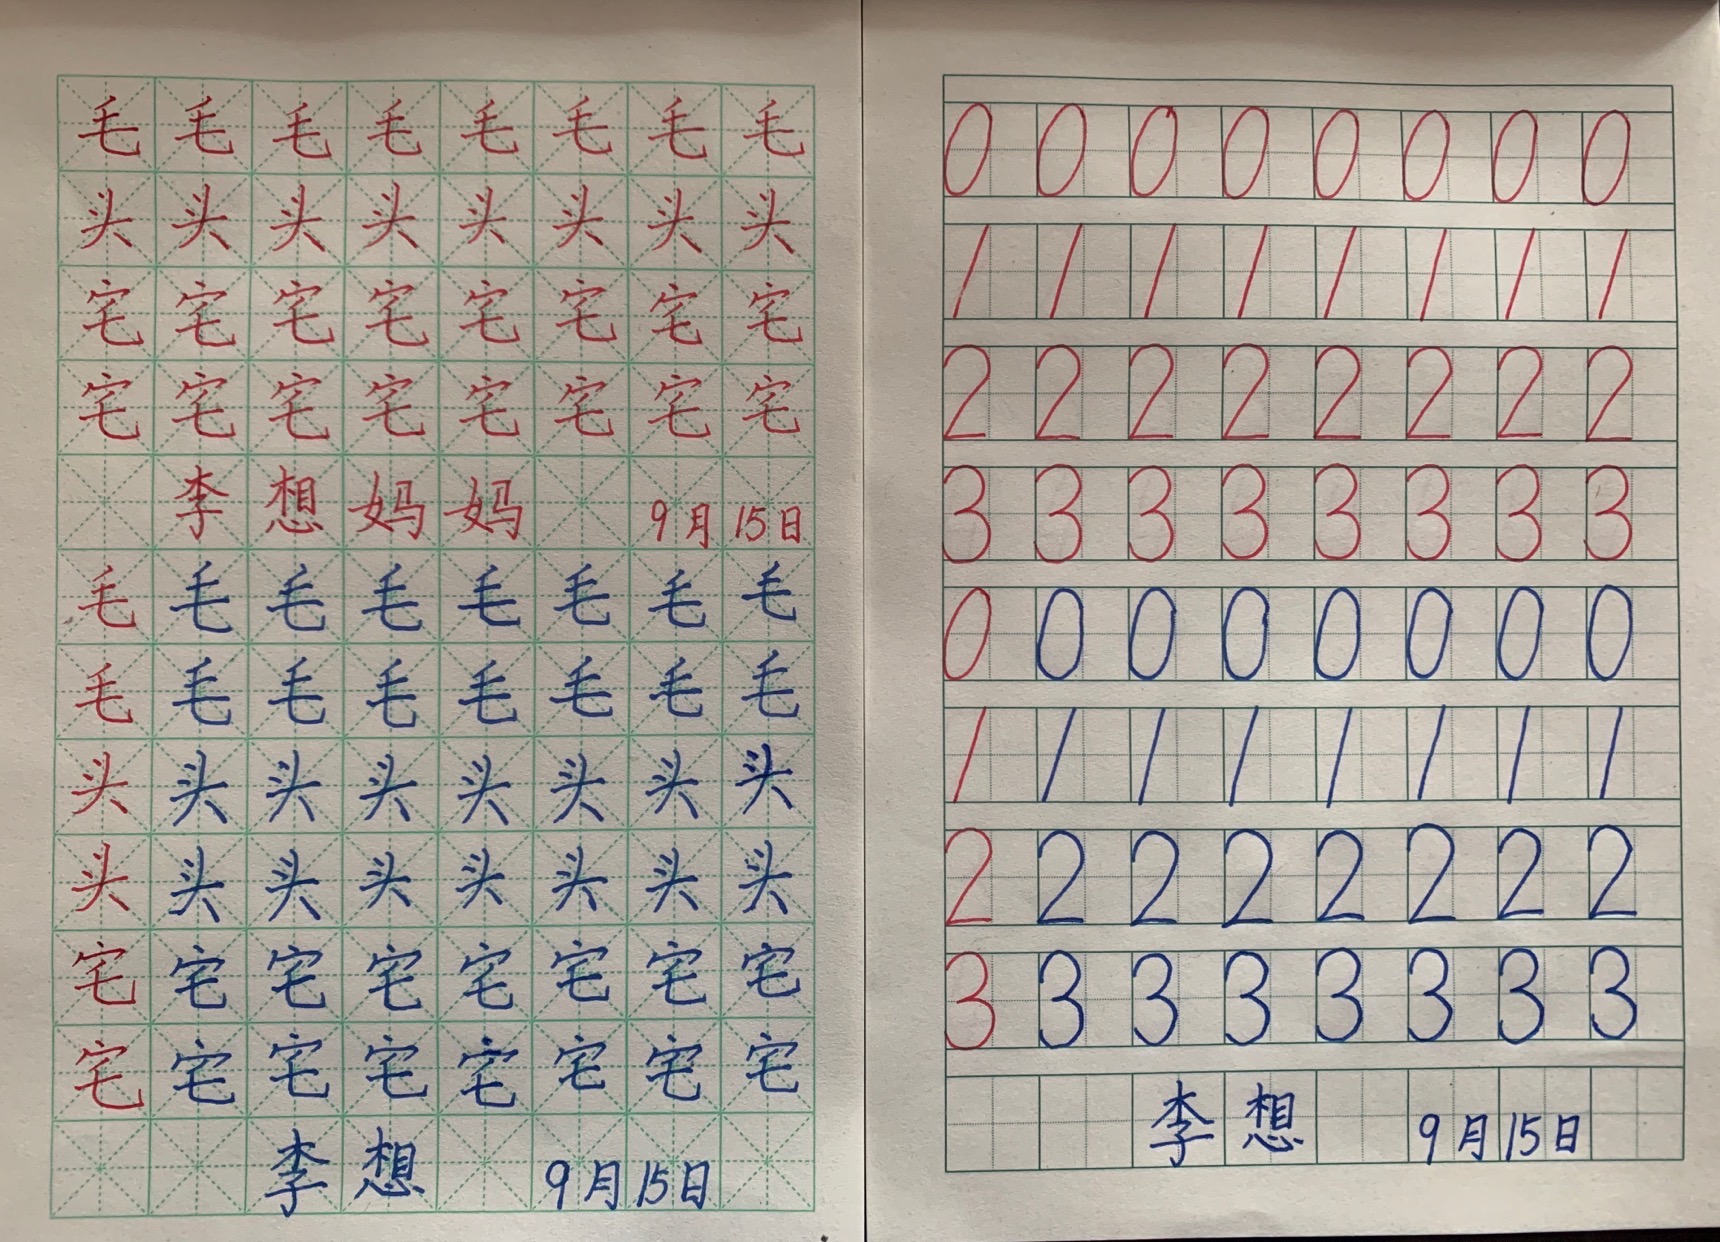 毛毛毛毛毛毛毛毛
头头头头头头头头
宅宅宅宅宅宅宅宅
宅宅宅宅宅宅宅宅
李想妈妈 9月15日
毛毛毛毛毛毛毛毛
毛毛毛毛毛毛毛毛
头头头头头头头头
头头头头头头头头
宅宅宅宅宅宅宅宅
宅宅宅宅宅宅宅宅
李想 9月15日
0 0 0 0 0 0 0 0
1 1 1 1 1 1 1 1
2 2 2 2 2 2 2 2
3 3 3 3 3 3 3 3
0 0 0 0 0 0 0 0
1 1 1 1 1 1 1 1
2 2 2 2 2 2 2 2
3 3 3 3 3 3 3 3
李想 9月15日